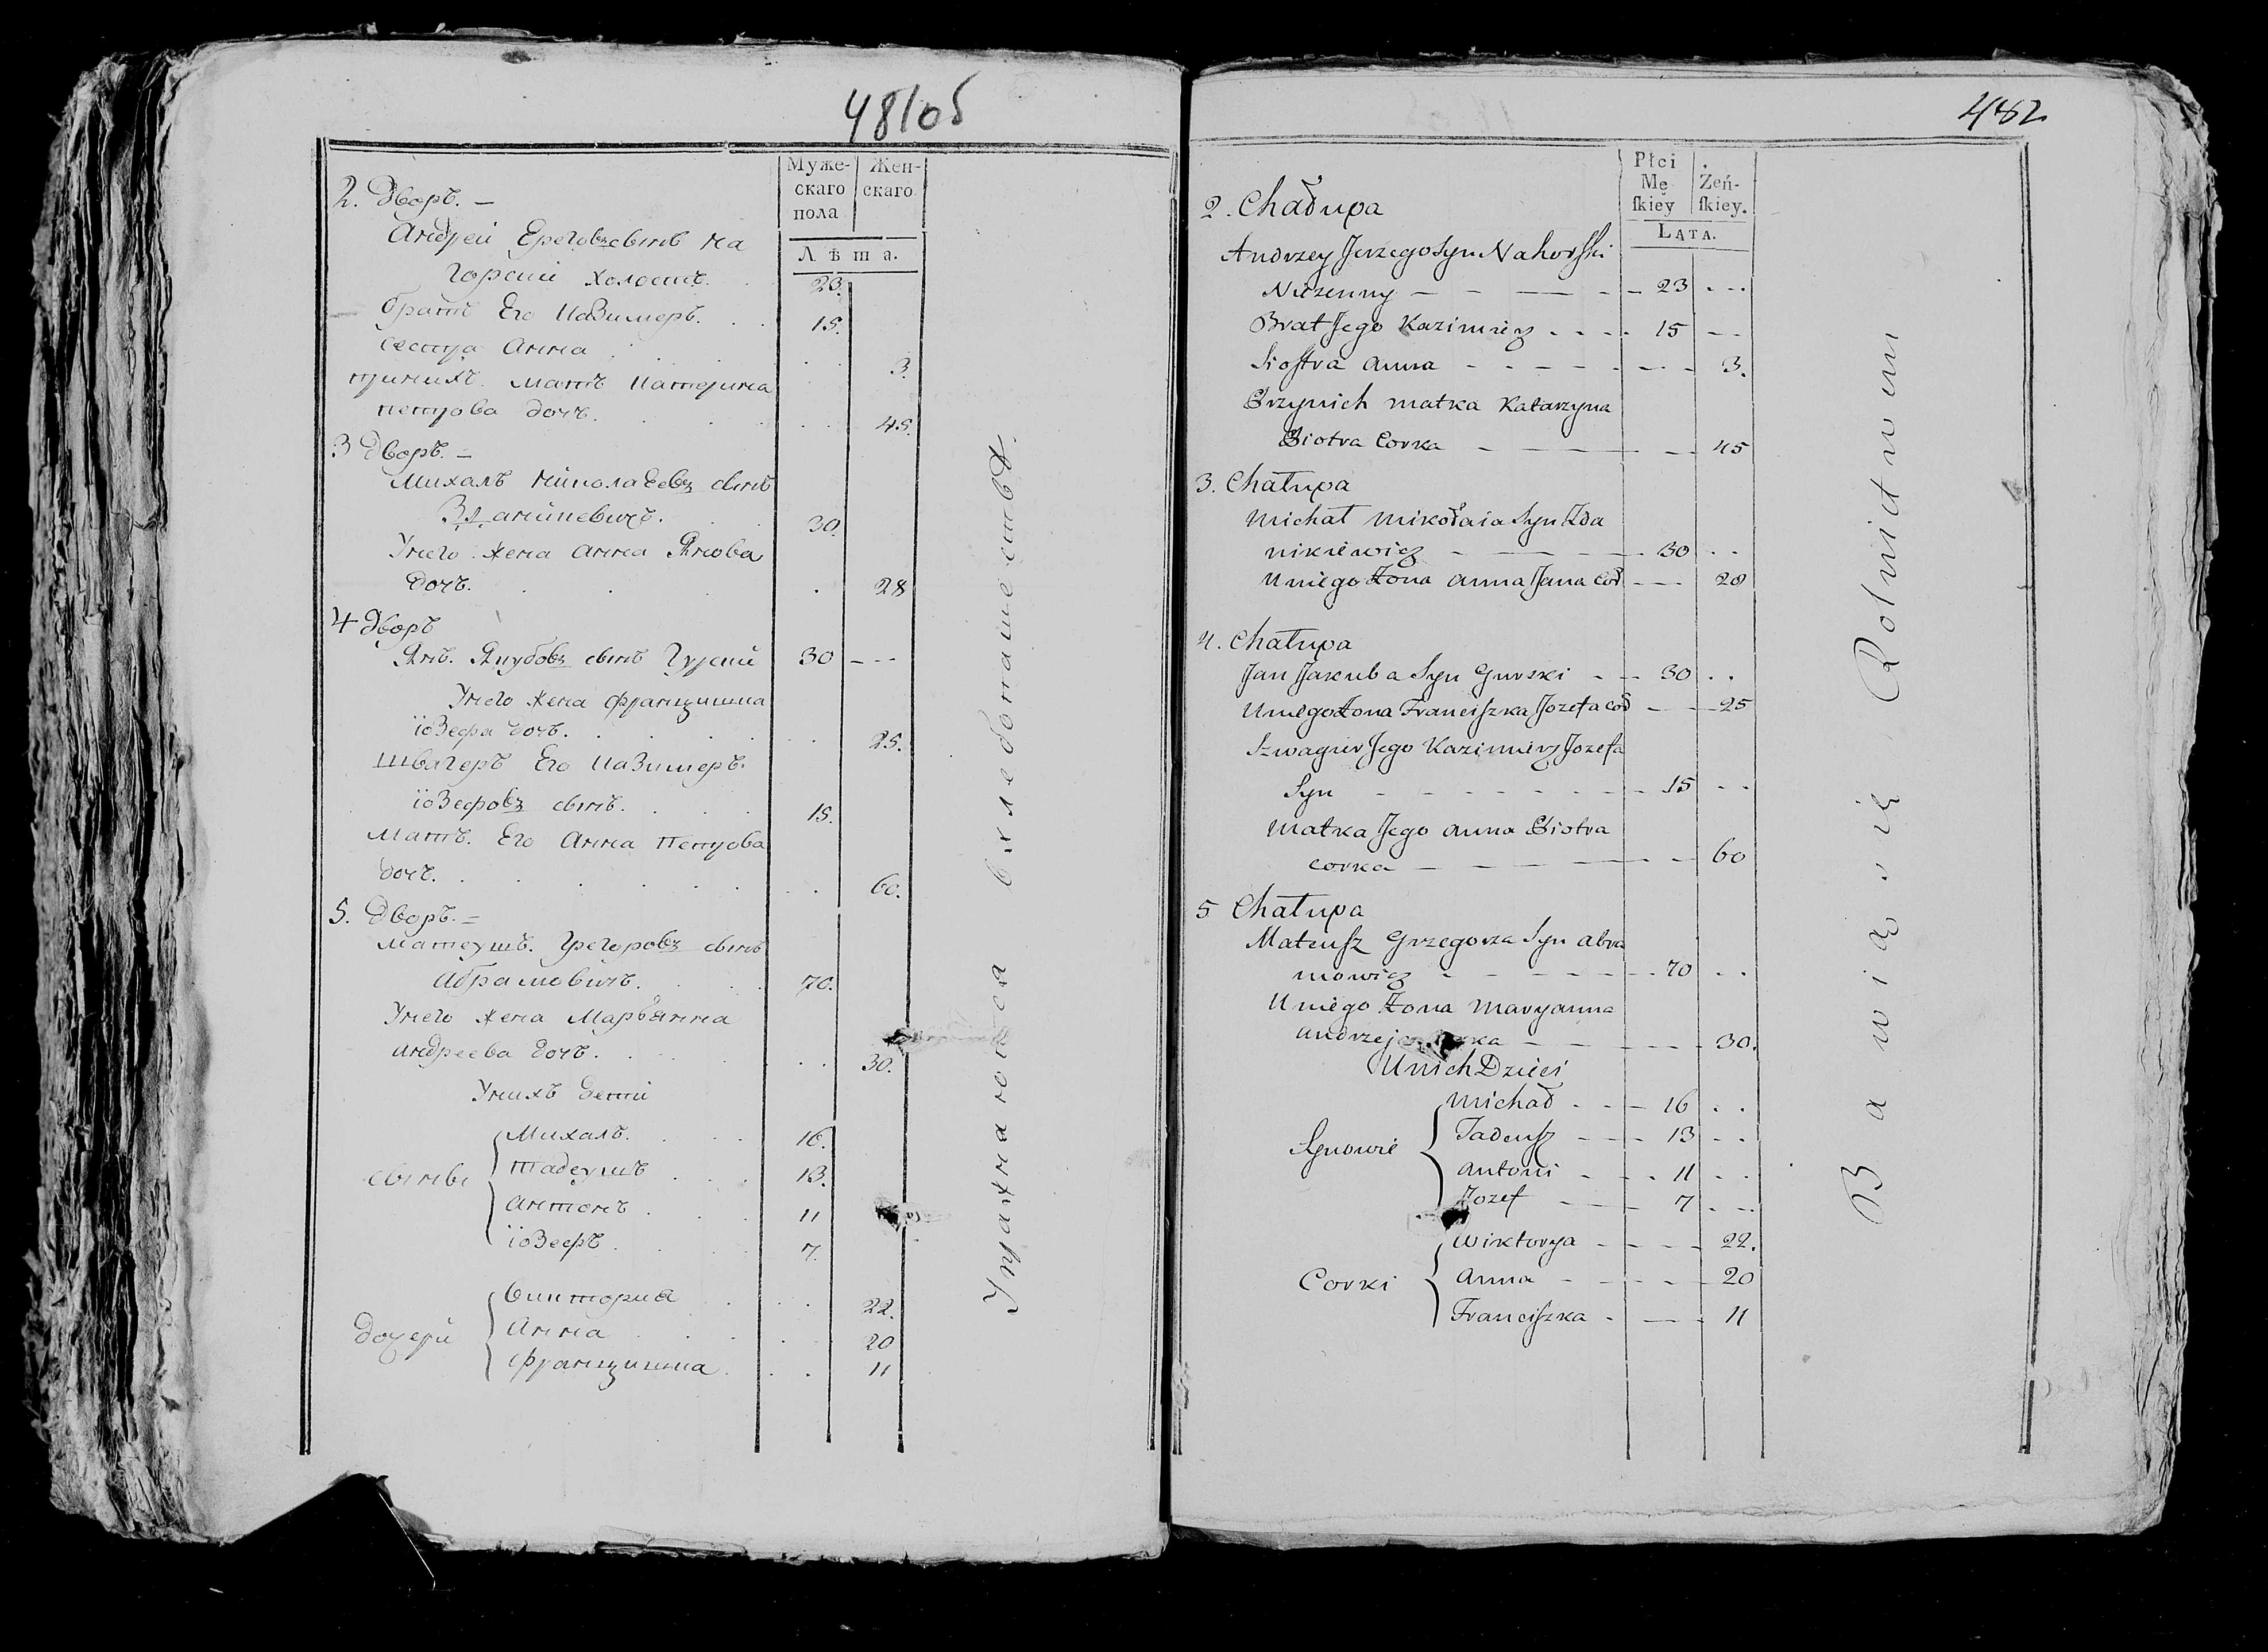 481об
Муже-
скаго
пола
Жен-
скаго
Лѣта.
2. Дворъ. —
Андрей Ереговъ сынъ На
горский холостъ. 23.
братъ Его Казимеръ. 15.
Сестра Анна 3.
при нихъ. Мать Катерина
петрова дочь. 45.
3 Дворъ. —
Михалъ Николаевъ сынъ
Зданикевичъ. 30.
Унего жена Анна Янова
дочь. 28
4 Дворъ
Янъ. Якубовъ сынъ Гурский 30 - - -
Унего жена Францишка
іозефа дочь. 25.
Швагеръ Его Казимеръ.
іозефовъ сынъ. 15.
Мать. Его Анна Петрова
дочь. 60.
5. Дворъ. =
Матеушъ. Грегоровъ сынъ
Абрамовичъ. 70.
Унего жена Марьянна
Андреева дочь. 30.
Унихъ дети
сыны
Михалъ. 16.
Тадеушъ 13.
Антонъ 11
іозефъ 7.
дочери
Виктория 22.
Анна 20
Францишка 11
Упражняются вхлебопашестве.
482
Płci
Mę
ſkiey
Żeń-
ſkiey.
LATA.
2. Chałupa
Andrzey Jerzego Syn Nahorſki
Nieżenny — 23 - - -
Brat Jego Kazimierz - - - - 15 - -
Sioſtra Anna - - - - - 3.
Przynich matka Katarzyna
Piotra Corka — 45
3. Chałupa
Michał Mikołaia Syn Zda
nikiewicz — 30 - -
Uniego Żona Anna Jana Cor — 28
4. Chałupa
Jan Jakuba Syn Gurski - - 30 - -
Uniego Żona Franciſzka Jozefa cor — 25
Szwagier Jego Kazimierz Jozefa
Syn - - - - - 15 - -
Matka Jego Anna Piotra
corka — 60
5 Chałupa
Mateuſz Grzegorza Syn Abra
mowicz - - - - - 70 - -
Uniego Żona Maryanna
Andrzeja — 30.
Unich Dzieci
Synowie
Michał - - - 16 - -
Tadeuſz - - - 13 - -
Antoni - - - 11 - -
Jozef — 7 - -
Corki
Wiktorya - - - - 22.
Anna - - - - 20
Franciſzka - - - 11
Bawią się Rolnictwem